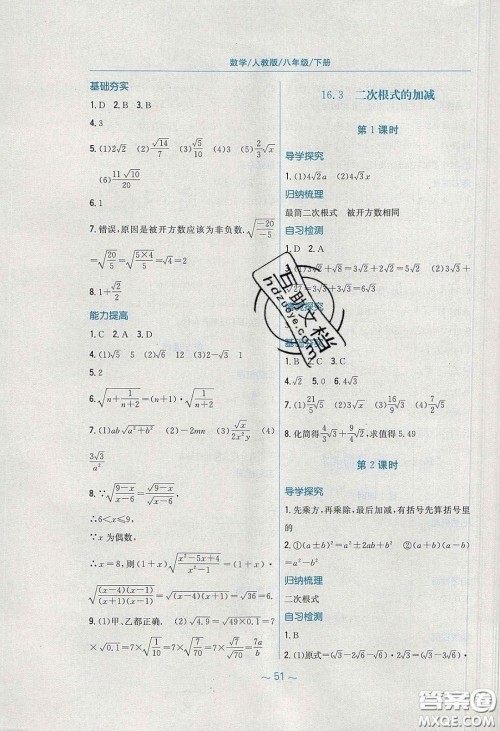 数学/人教版/八年级/下册
基础夯实
1. D 2. A 3. D
4. 3
5. (1)2√2 (2)√14/7 (3)√5/10 (4)3 (5)(2/3)√x
(6)11√10/20
6. 1
7. 错误,原因是被开方数应该为非负数. √(-20/-5)
=√(20/5)=√(5×4/5)=√4=2
8. 1+√2/2
能力提高
1. C 2. D 3. A
4. (1)√5 (2)12 (3)2-√3
5. 2
6. √(n+1/(n+2))=(n+1)·√(1/(n+2))
7. (1)ab√(a²+b²) (2)-2mn (3)√x/(2x²y) (4)
3√3/a²
8. ∵√((9-x)/(x-6))=√(9-x)/√(x-6)
∴6<x≤9,
∵x 为偶数,
∴x=8, 则(1+x)√((x²-5x+4)/(x²-1))=(1+x)·
√((x-4)(x-1)/((x-1)(x+1)))=√((x-4)(x+1))=√36=6.
9. (1)甲、乙都正确. (2)√4.9=√(49×0.1)=7
×√0.1=7×√(1/10)=7×√(7/70)=7×√7/√70=7a/b
16.3 二次根式的加减
第 1 课时
导学探究
1. (1)4√2a (2)4√3x
归纳梳理
最简二次根式 被开方数相同
自习检测
1. D 2. A
3. (1)3√2+√8=3√2+2√2=5√2 (2)√3+
√27=√3+3√3=4√3
基础夯实
1. B 2. B 3. C
4. √2 5. 0 6. 10
7. (1)(21/5)√5 (2)6√3 (3)(16/9)√3 (4)(7/2)√5
8. 化简得(4/3)√3+(9/4)√2, 求值得 5.49
第 2 课时
导学探究
1. 先乘方,再乘除,最后加减,有括号先算括号里
的
2. ①(a±b)²=a²±2ab+b² ②(a+b)(a-b)
=a²-b²
归纳梳理
二次根式
自习检测
1. B
2. (1)原式=(√3-2√6)×√3=√3×√3-2√6×
~ 51 ~
互助文档
hdzuoye.com
答案圈
MXQE.COM